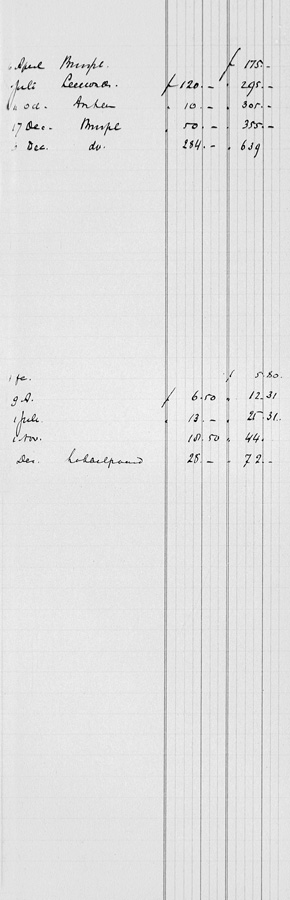 April f 175.-
Juli f 120.- 295.-
Oct. Arnhem 10.- 305.-
17 Dec. 50.- 355.-
Dec. do. 284.- 639
f 5.80.
9 A. f 6.50 12.31
1 Juli. 13.- 25.31.
1 Nov. 18.50 44.
Dec. 28.- 72.-